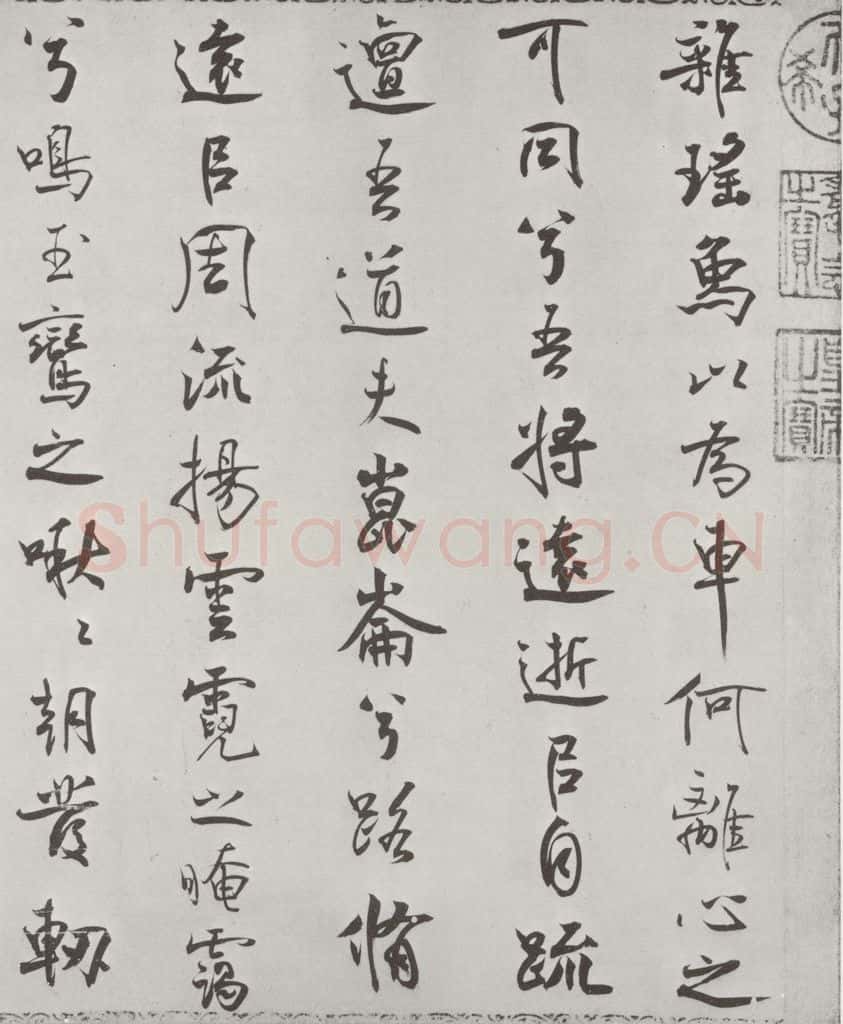 雜瑤象以為車何離心之
可同兮吾將遠逝㠯自疏
邅吾道夫崑崙兮路脩
遠㠯周流揚雲霓之晻靄
兮鳴玉鸞之啾〻朝發軔
Shufawang.CN